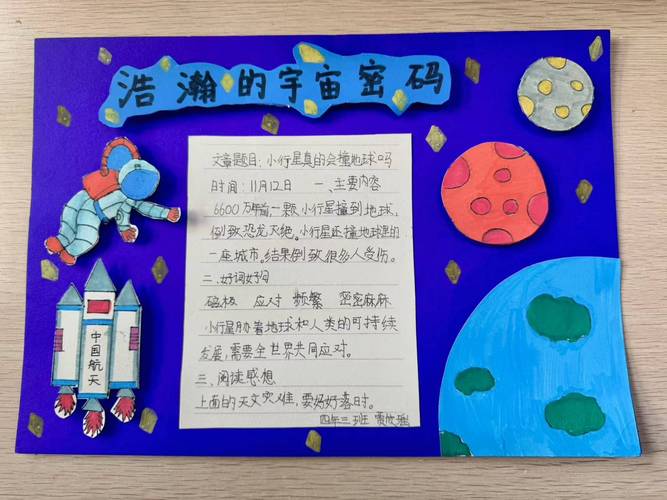 浩瀚的宇宙密码
文章题目:小行星真的会撞地球吗
时间:11月12日 一、主要内容
6600万年前,一颗小行星撞到地球,
倒致恐龙灭绝。小行星还撞地球里的
一座城市。结果倒致很多人受伤。
二、好词好句
磁极 应对 频繁 密密麻麻
小行星胁着地球和人类的可持续
发展,需要全世界共同应对。
三、阅读感想
上面的天文灾难,要好好落时。
四年三班
中国航天